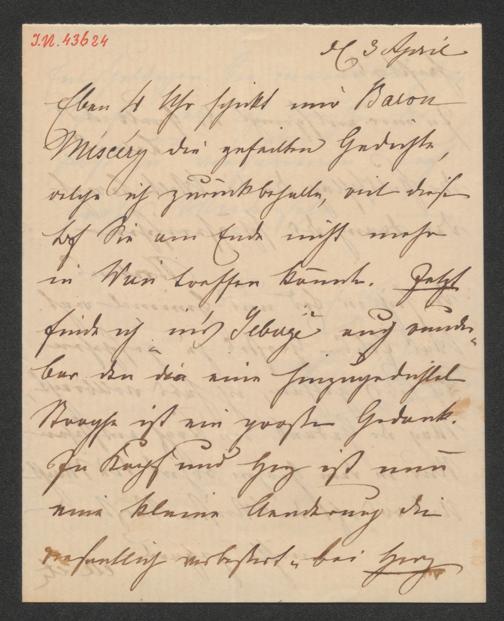 I.N. 43624
d. 3 April
Eben 4 Uhr schickt mir Baron
die gefeilten Gedichte,
welche ich zurückbehalte, weil diese
Sie am Ende nicht mehr
in Wien treffen könnte. Jetzt
finde ich auch wunder-
bar denn die eine hinzugedichtete
Strophe ist ein großer Gedanke.
In Kopf und Herz ist nun
eine kleine Aenderung die
wesentlich verbessert, bei Herz